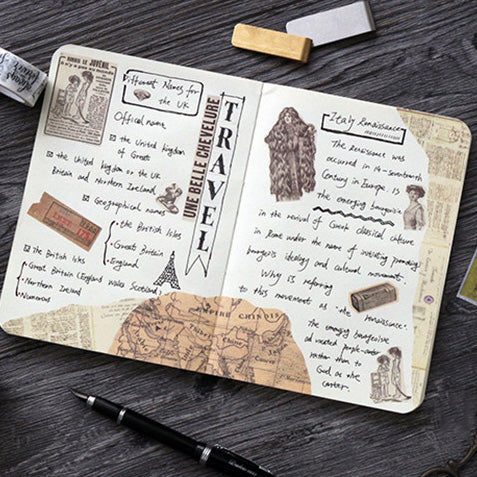 Different Names for
the UK
Official name
the United Kingdom
of Great
the United Kingdom or the UK
Britain and Northern Ireland
Geographical names
the British Isles
Great Britain
England
The British Isles
Great Britain (England Wales Scotland)
Northern Ireland
Numerous
UNE BELLE CHEVELURE
TRAVEL
EMPIRE CHINOIS
Italy Renaissance
The Renaissance was
occurred in 14-seventeenth
Century in Europe, is
The emerging bourgeoise
in the revival of Greek classical culture
in Rome under the name of
bourgeois ideology and cultural movement.
Why is referring
to this movement is the renaissance:
The emerging bourgeoisie
advocated people-center
rather than to
God as the
center.